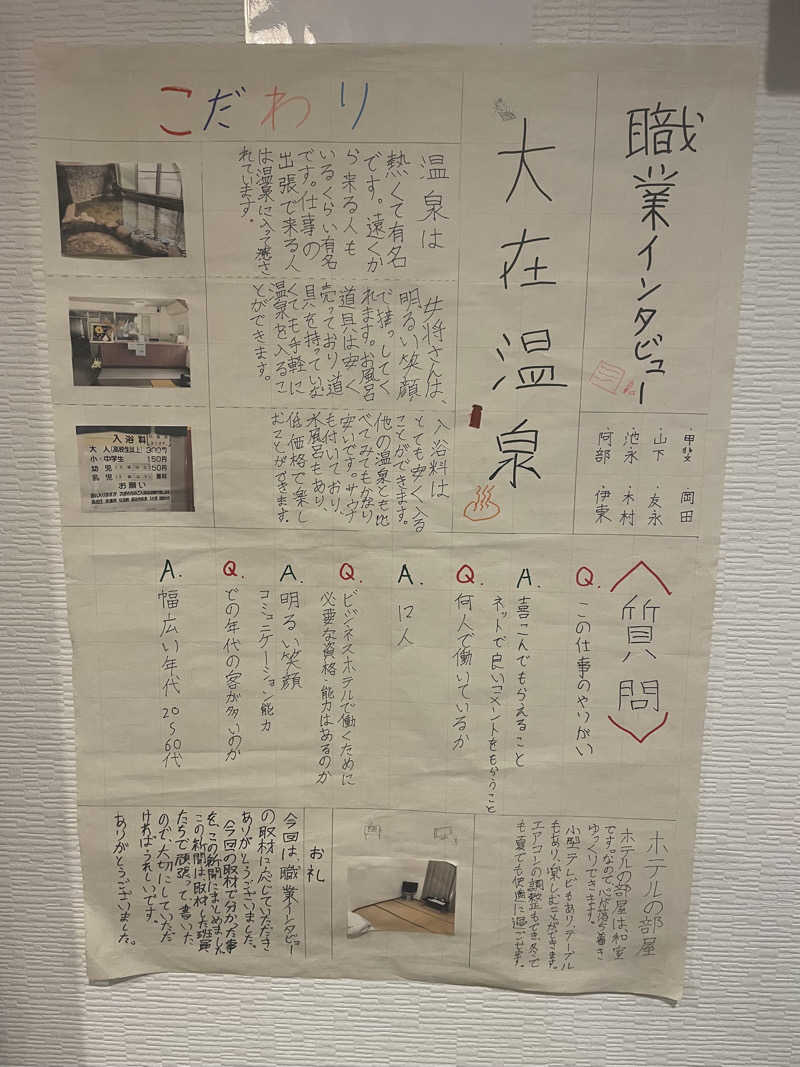 職業インタビュー
・甲斐 ・岡田
・山下 ・友永
・池永 ・木村
・阿部 ・伊東
大在温泉
こだわり
温泉は
熱くて有名
です。遠くか
ら来る人も
いるくらい有名
です。仕事の
出張で来る人
は温泉に入って癒さ
れています。
女将さんは、
明るい笑顔
で接っしてく
れます。お風呂
道具は安く
売っており道
具を持っていな
くても手軽に
温泉を入るこ
とができます。
入浴料は
とても安く入る
ことができます。
他の温泉とも比
べてみてもかなり
安いです。サウナ
も付いており、
水風呂もあり、
低価格で楽し
むことができます。
入浴料
大人(高校生以上) 300円
小・中学生 150円
幼児 50円
乳児 無料
お願い
質問
Q. この仕事のやりがい
A. 喜こんでもらえること
ネットで良いコメントをもらうこと
Q. 何人で働いているか
A. 12人
Q. ビジネスホテルで働くために
必要な資格・能力はあるのか
A. 明るい笑顔
コミュニケーション能力
Q. どの年代の客が多いのか
A. 幅広い年代 20~60代
ホテルの部屋
ホテルの部屋は和室
です。なので心が落ち着き
ゆっくりできます。
小型テレビもあり、テーブル
もあり、楽しむことができます。
エアコンの調整もでき、冬で
も夏でも快適に過ごせます。
お礼
今回は、職業インタビュー
の取材に応じていただき
ありがとうございました。
今回の取材で分かった事
を、この新聞にまとめました
この新聞は、取材した班員
たちで頑張って書いた
ので、大切にしていただ
ければうれしいです。
ありがとうございました。